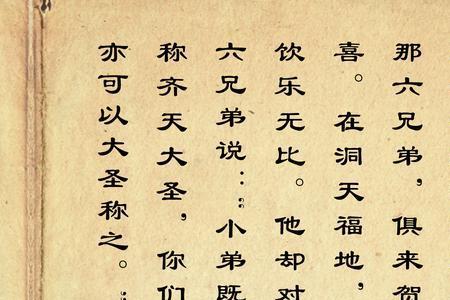 那六兄弟，俱来贺
喜。在洞天福地，
饮乐无比。他却对
六兄弟说：：小弟既
称齐天大圣，你们
亦可以大圣称之。